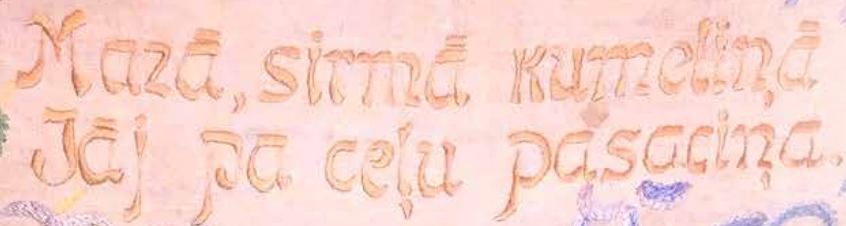 Mazā, sirmā kumeliņā
Jāj pa ceļu pasaciņa.